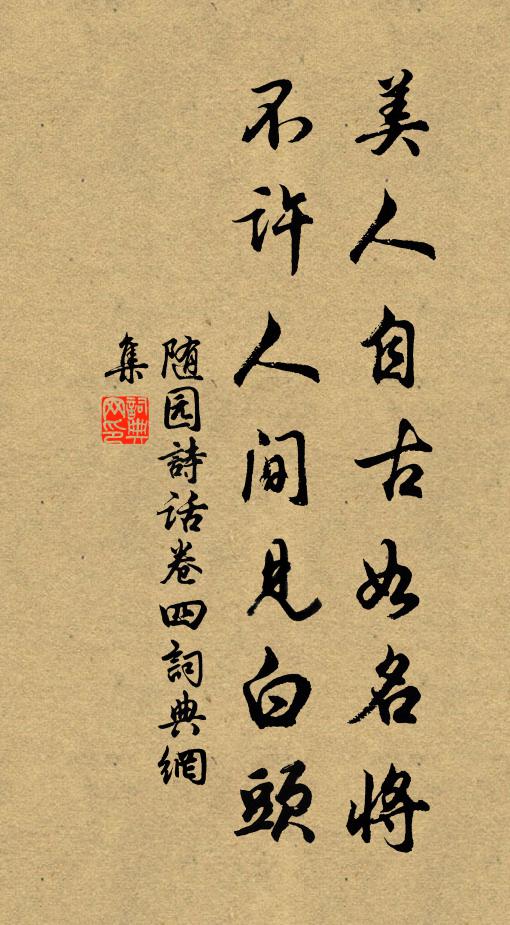 美人自古如名将
不许人间见白頭
随园詩话卷四詞典網
集
詞典網印